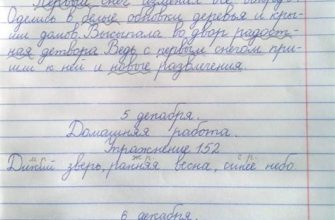 Первый снег
Оделись в белые обновки деревья и кры-
ши домов. Высыпала во двор радост-
ная детвора. Ведь с первым снегом при-
шли к ней и новые развлечения
5 декабря.
Домашняя работа.
Упражнение 152
м.р. ж.р. с.р.
Дикий зверь, ранняя весна, синее небо.
6 декабря.